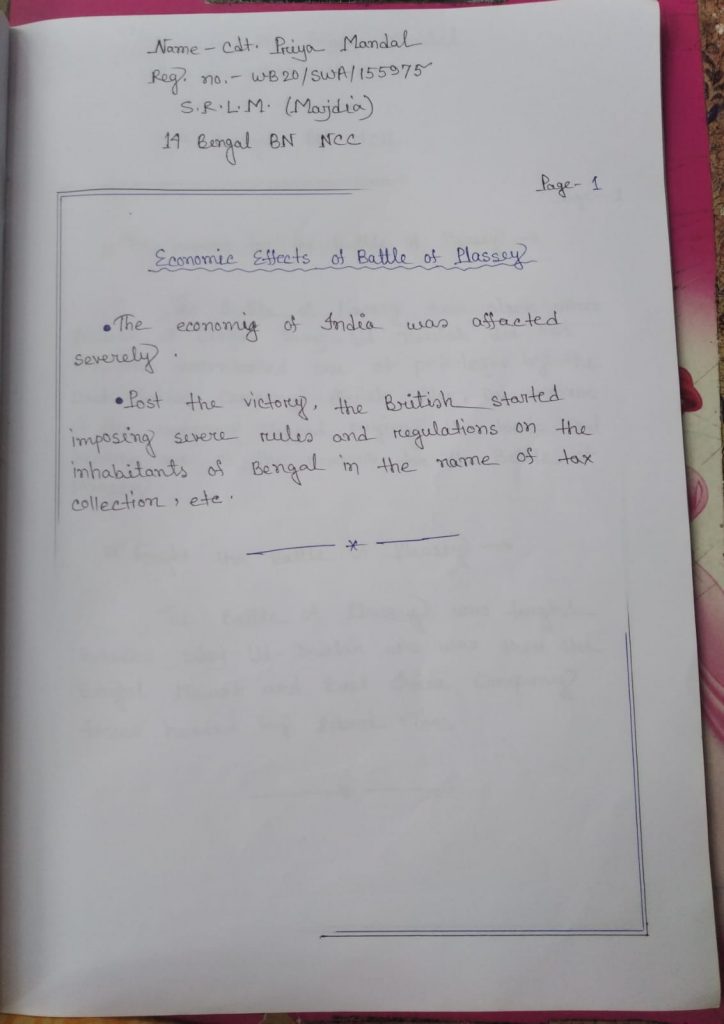 Name - Cdt. Priya Mandal
Reg. no. - WB20/SWA/155975
S.R.L.M. (Majdia)
14 Bengal BN NCC
Page - 1
Economic Effects of Battle of Plassey
• The economig of India was affacted
severely.
• Post the victory, the British started
imposing severe rules and regulations on the
inhabitants of Bengal in the name of tax
collection, etc.